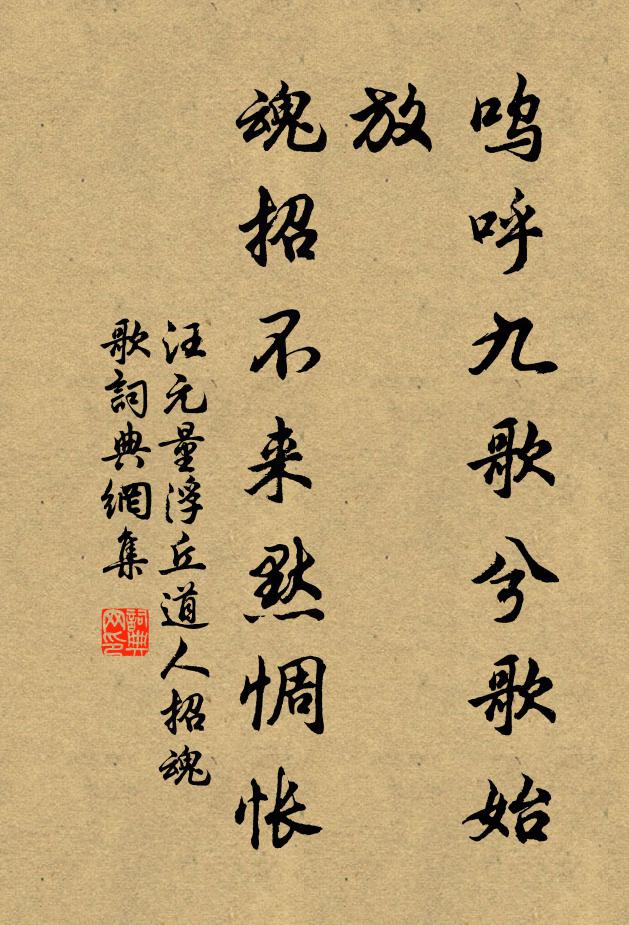 呜呼九歌兮歌始
放
魂招不来黙惆怅
汪元量浮丘道人招魂
歌詞典網集
詞典
网印